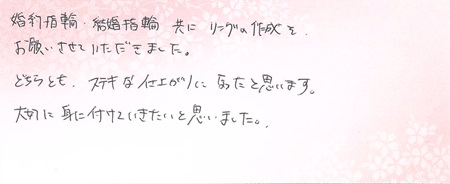 婚約指輪・結婚指輪 共に リングの作成を、
お願いさせていただきました。
どちらとも、ステキな仕上がりになったと思います。
大切に身に付けていきたいと思いました。